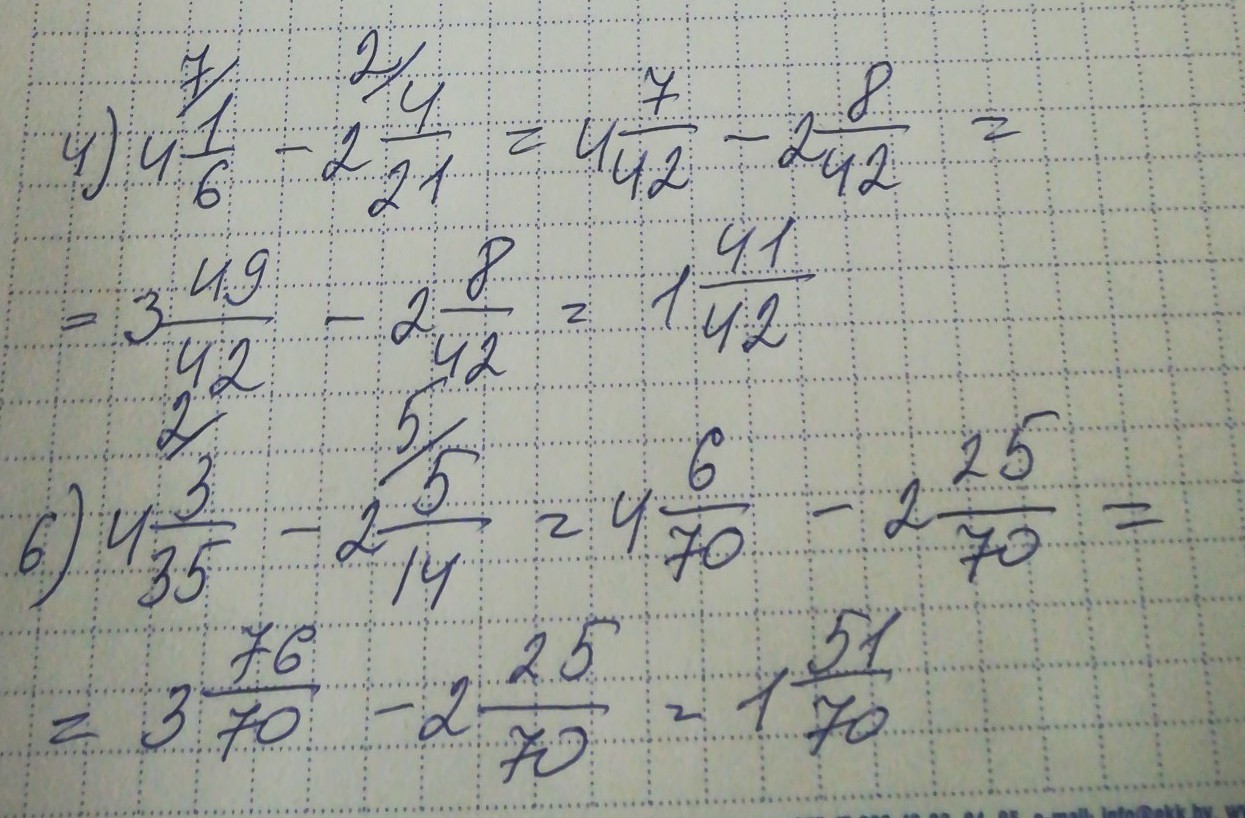 4) 4 7/ 1/6 - 2 2/ 4/21 = 4 7/42 - 2 8/42 =
= 3 49/42 - 2 8/42 = 1 41/42
6) 4 2/ 3/35 - 2 5/ 5/14 = 4 6/70 - 2 25/70 =
= 3 76/70 - 2 25/70 = 1 51/70
e-mail: info@ekk.by